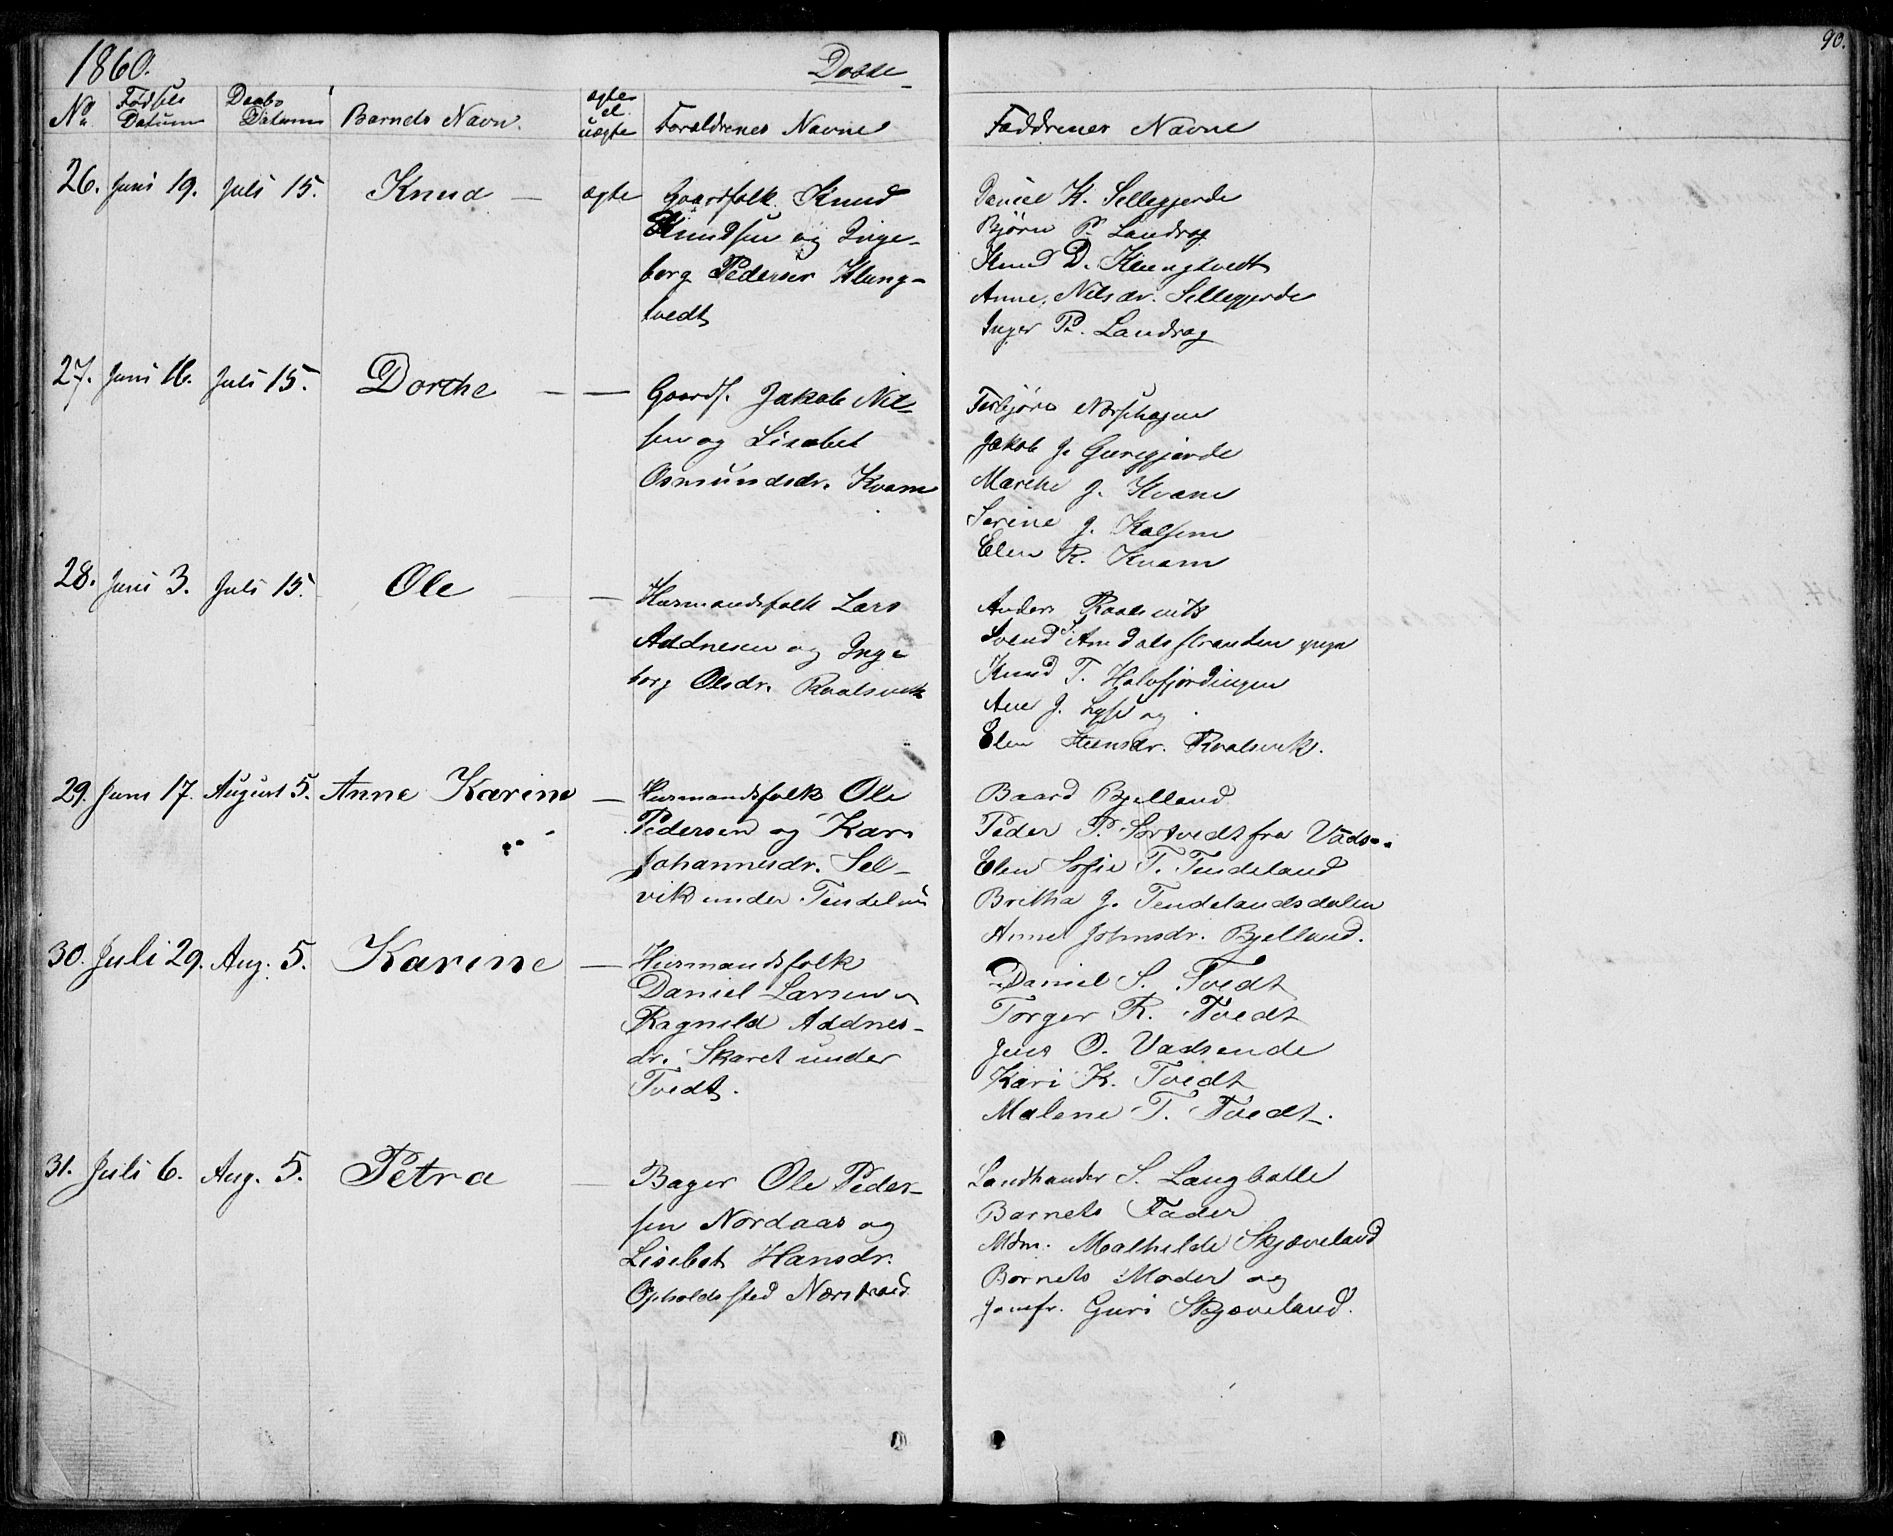 1860.
Døbte
90.
No.
Fødsels Datum
Daabs Datum
Barnets Navn.
ægte el. uægte
Forældrenes Navne
Faddrenes Navne
26. Juni 19. Juli 15. Knud — ægte
Gaardfolk Knud
Knudsen og Inge-
borg Pedersdr Klung-
tvedt
Daniel K. Sellegjerde
Bjørn P. Landrog
Knud D. Klungtvedt
Anne Nilsdr. Sellegjerde
Inger P. Landrog
27. Juni 16. Juli 15. Dorthe — —
Gaardf. Jakob Nil-
sen og Lisabet
Osmundsdr. Kvam
Torbjørn
Jakob J.
Marthe J. Kvam
Serine J.
Elen R. Kvam
28. Juni 3. Juli 15. Ole — —
Husmandsfolk Lars
Addnesen og Inge-
borg Olsdr. Roalsvik
Anders Roalsvik
Svend Amdalsstranden
Knud T.
Ane J. Lyse og
Elen Steensdr. Roalsvik.
29. Juni 17. August 5. Anne Karine —
Husmandsfolk Ole
Pedersen og Kari
Johannesdr. Sel-
vik under
Baard Bjelland
Peder P. Sortvedt fra Vads..
Elen Sofie T. Tendeland
Britha J. Tendelandsdalen
Anne Johnsdr. Bjelland.
30. Juli 29. Aug. 5. Karine —
Husmandsfolk
Daniel Larsen o
Ragnild Addnes-
dr. Skaret under
Tvedt.
Daniel S. Tvedt
Torger R. Tvedt
Jens O. Vadsende
Kari K. Tvedt
Malene T. Tvedt.
31. Juli 6. Aug. 5. Petra —
Bager Ole Peder-
sen Nordaas og
Lisebet Hansdr.
Opholdssted Nærstrand
Landhandler S. Langballe
Barnets Fader
Mdm. Mathilde Skjæveland
Barnets Moder og
Jomfr. Guri Skjæveland.